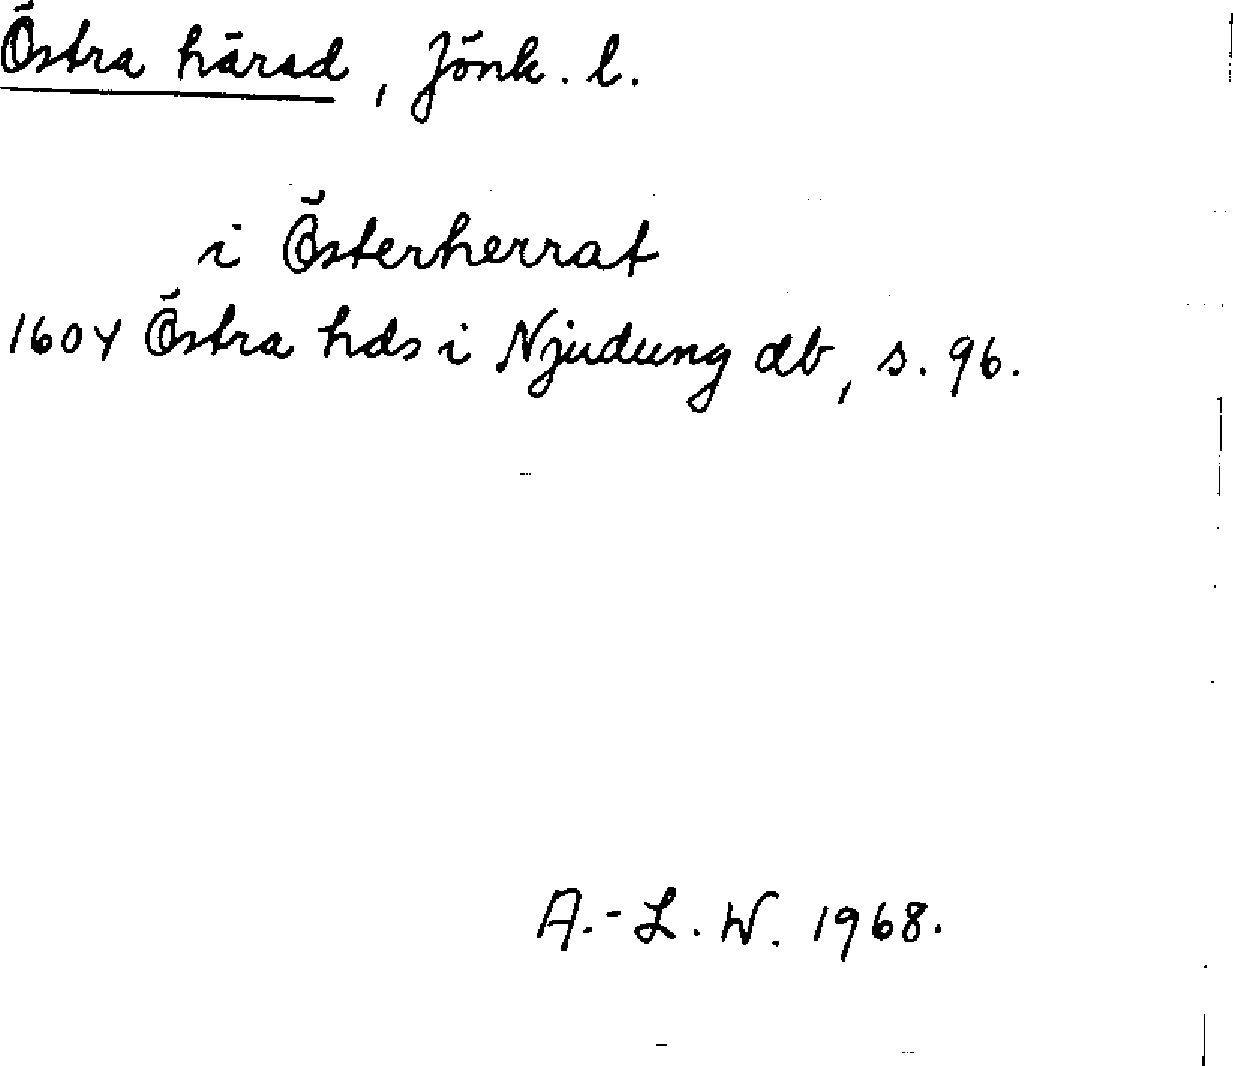 Östra härad, Jönk. l.
i Österherrat
1604 Östra hds i Njudung db, s. 96.
A.-L. W. 1968.